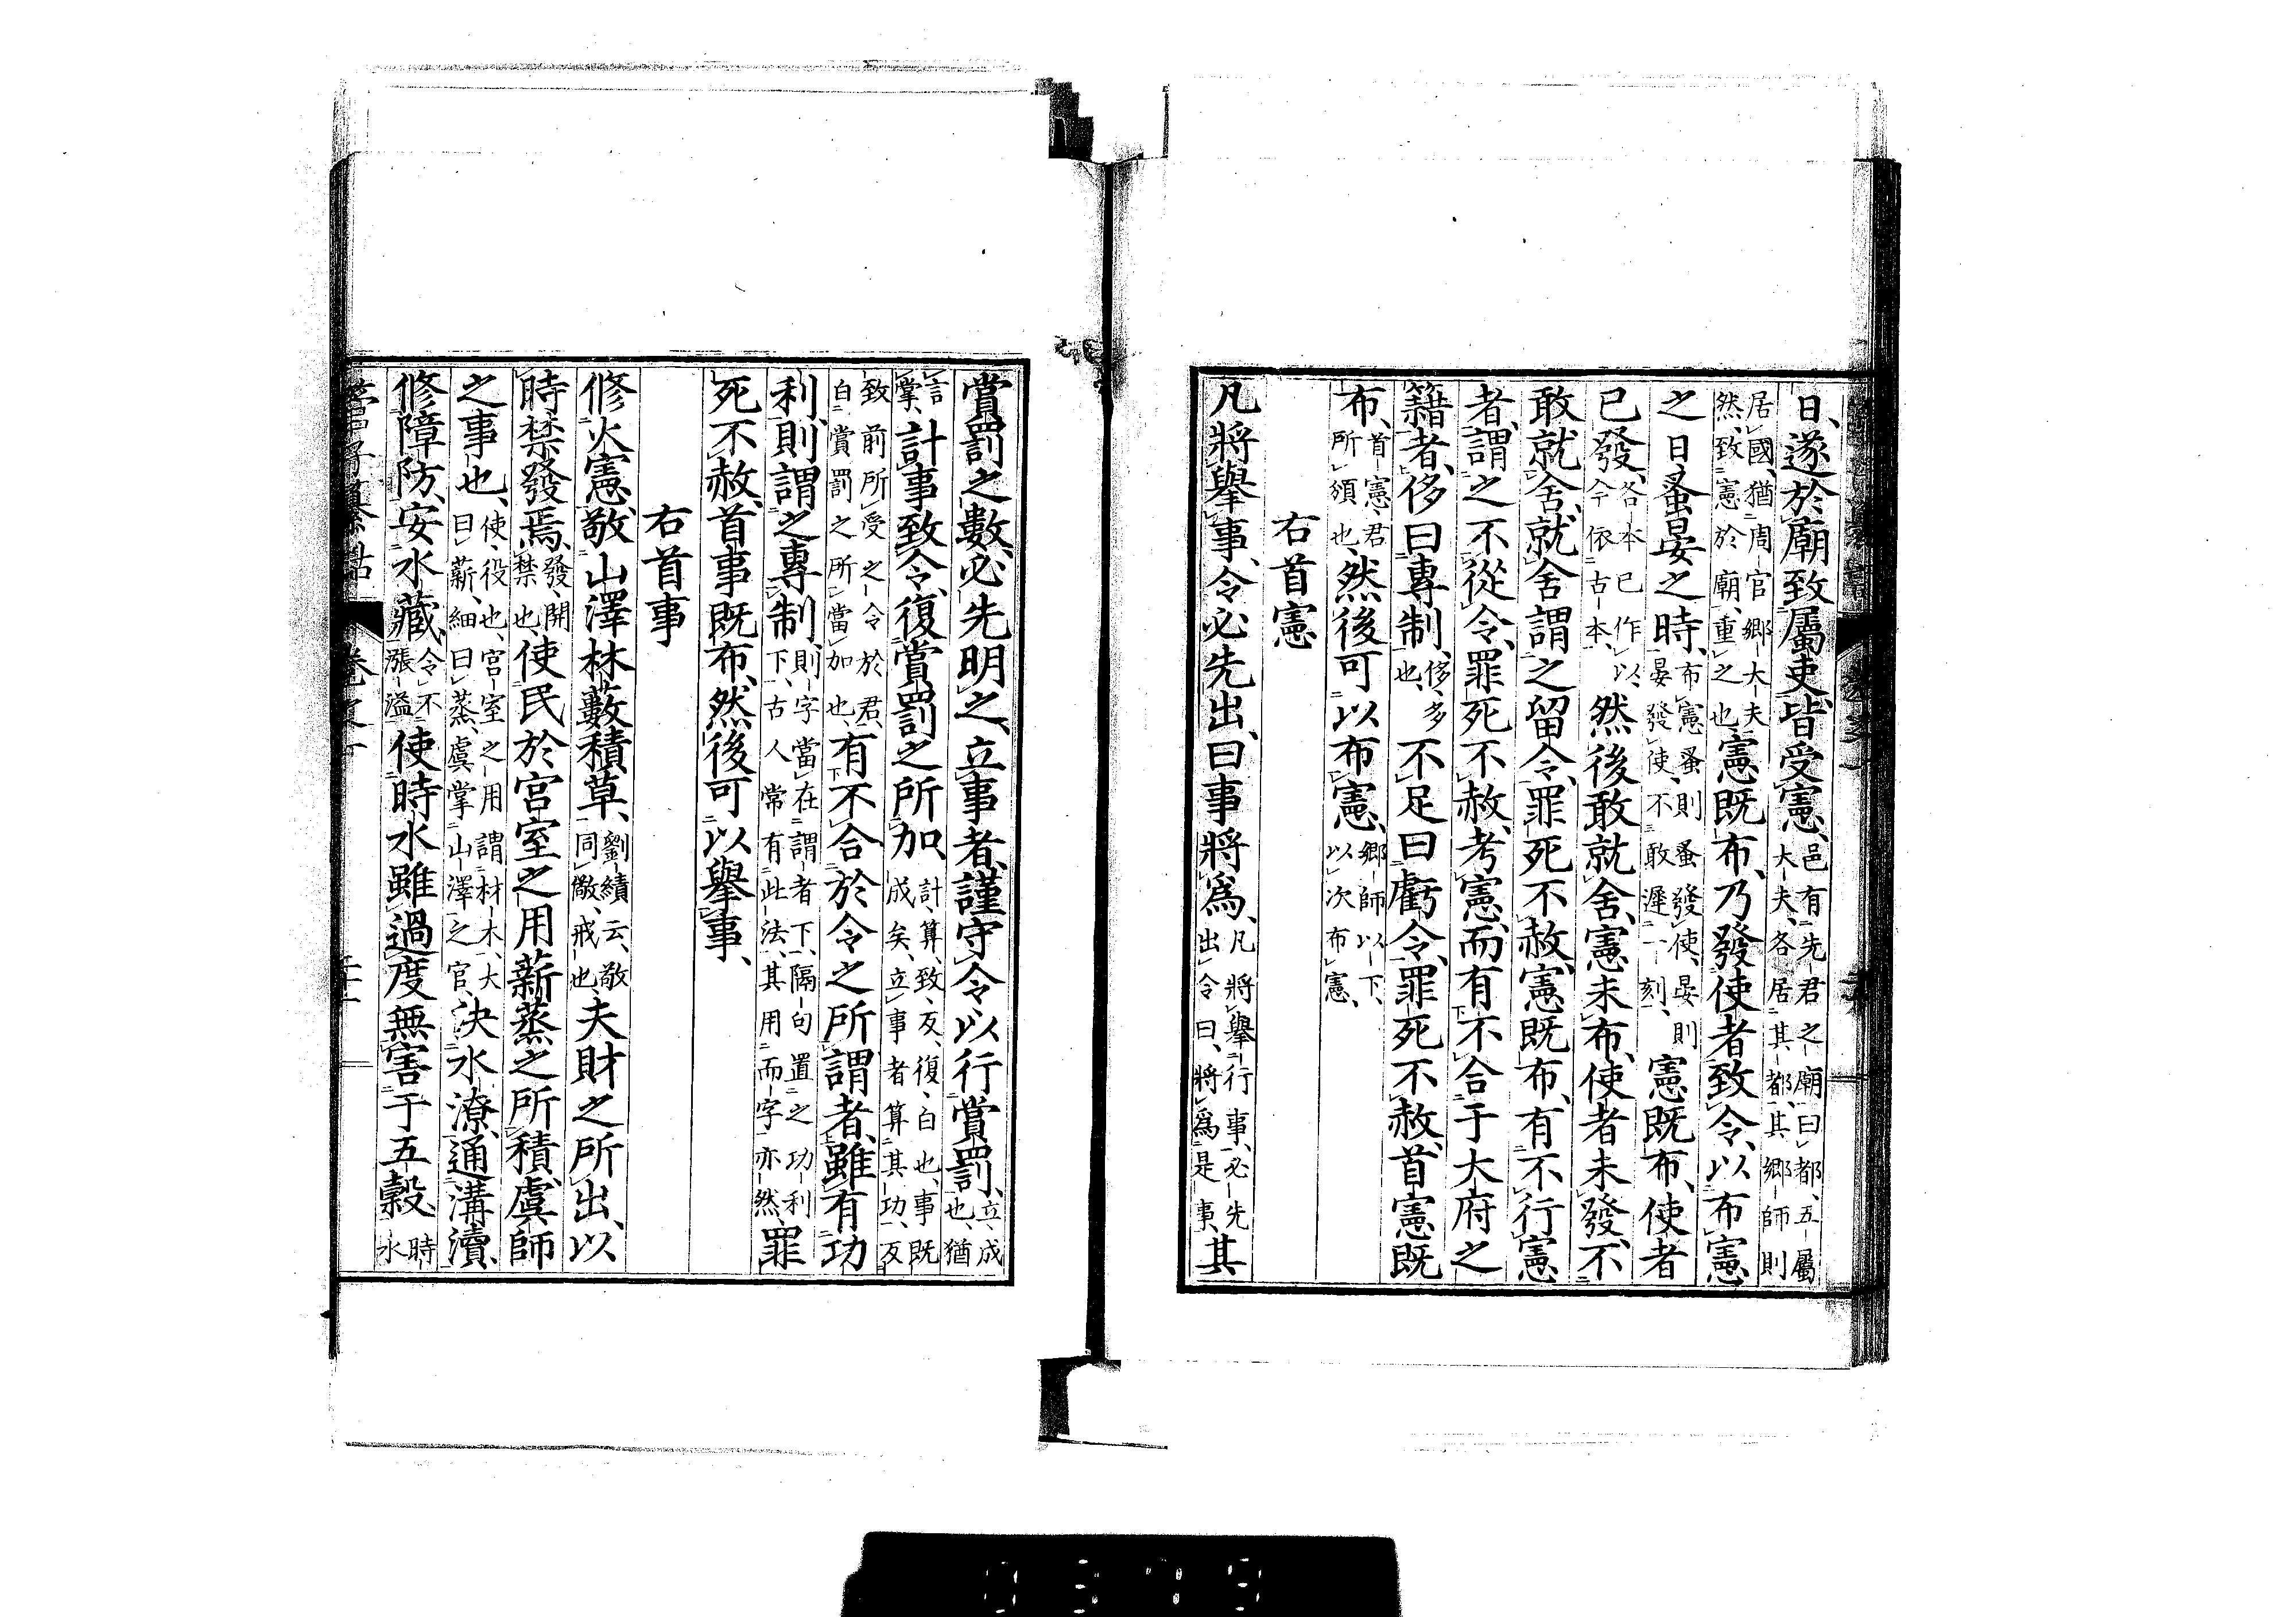 日、遂於廟致屬吏、皆受憲、邑有先君之廟曰都、五屬大夫、各居其都、其鄉師則
居國、猶周官鄉大夫然、致憲於廟、重之也、憲既布、乃發使者致令、以布憲
之日蚤晏之時、布憲蚤則蚤發使、晏則晏發使、不敢遲一刻、憲既布、使者
已發、各本已作以、今依古本、然後敢就舍、憲未布、使者未發、不
敢就舍、就舍謂之留令、罪死不赦、憲既布、有不行憲
者、謂之不從令、罪死不赦、考憲、而有不合于大府之
籍者、侈曰專制、侈、多也、不足曰虧令、罪死不赦、首憲既
布、首憲、君所頒也、然後可以布憲、鄉師以下、以次布憲、
右首憲
凡將舉事、令必先出、曰事將爲、凡將舉行事、必先出令曰、將爲是事、其
賞罰之數、必先明之、立事者、謹守令以行賞罰、立、成也、猶
言掌、計事致令、復賞罰之所加、計、算、致、反、復、白也、事既成矣、立事者算其功、反
致前所受之令於君、白賞罰之所當加也、有不合於令之所謂者、雖有功
利、則謂之專制、則字當在謂者下、隔句置之功利下、古人常有此法、其用而字亦然、罪
死不赦、首事既布、然後可以舉事、
右首事
修火憲、敬山澤林藪積草、劉績云、敬同儆、戒也、夫財之所出、以
時禁發焉、發、開禁也、使民於宮室之用薪蒸之所積、虞師
之事也、使、役也、宮室之用謂材木、大曰薪、細曰蒸、虞掌山澤之官、決水潦、通溝瀆、
修障防、安水藏、令不漲溢、使時水雖過度無害于五穀、時水
管子纂詁 卷一